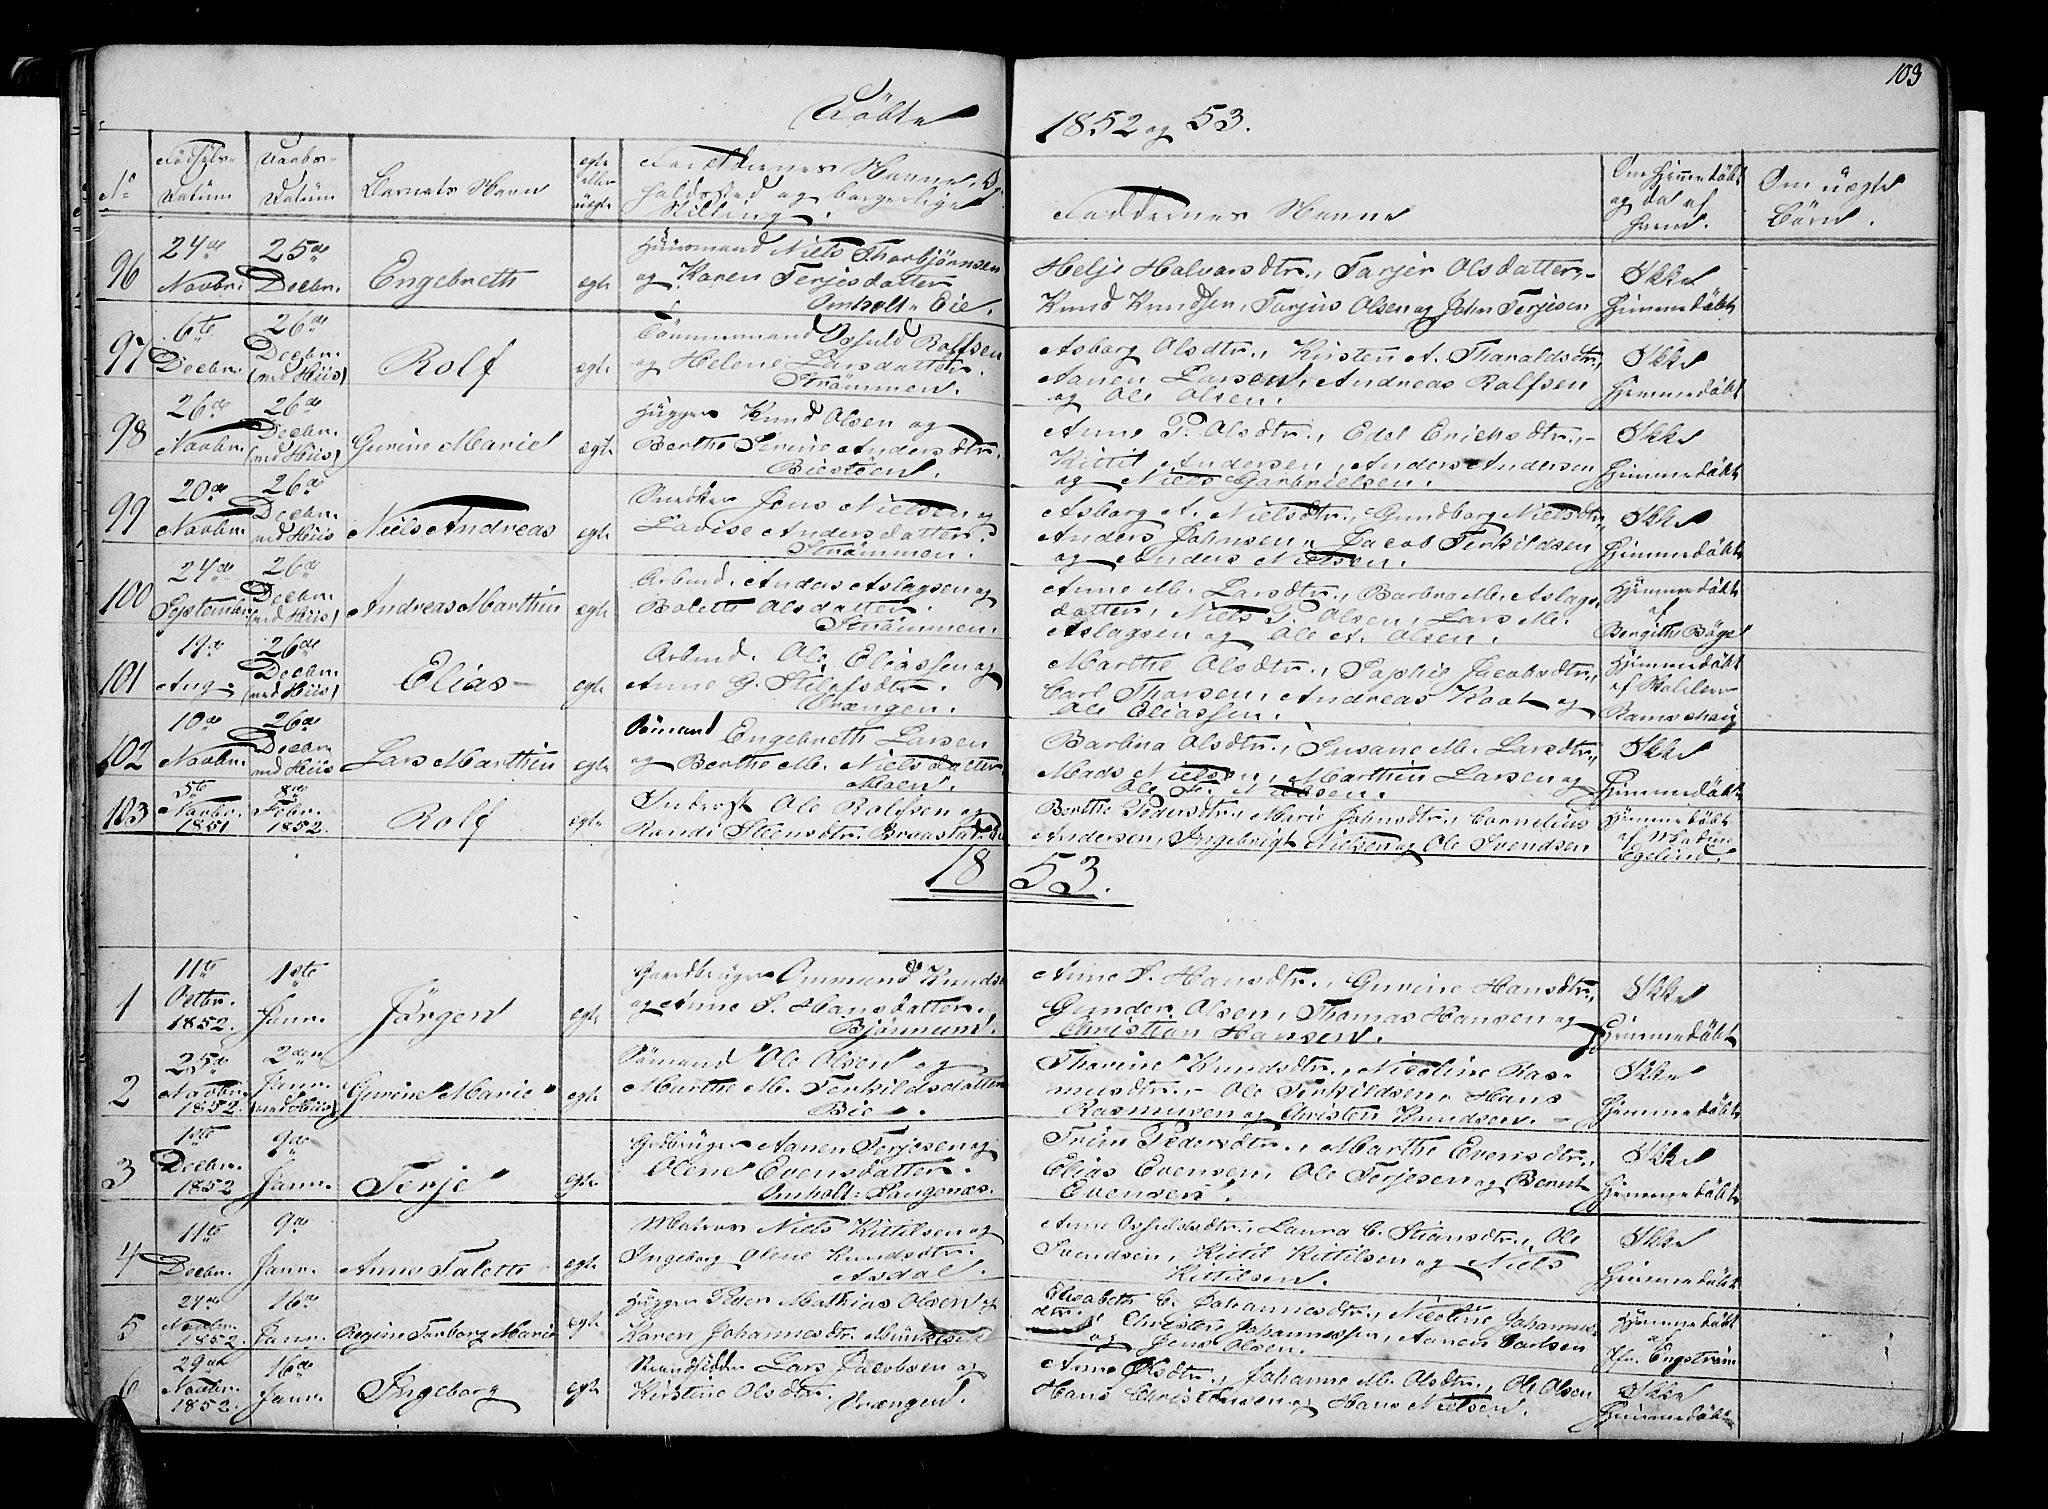 103
Döbte 1852 og 53.
No Fødsels-Datum Daabs-Datum Barnets Navn egte eller uegte Forældrenes Navne, Opholdssted og borgerlige Stilling. Faddernes Navne Om hjemmedöbt og da af hvem. Om uægte Börn.
96 24de Novbr. 25de Decbr. Engebreth egte Huusmand Niels Thorbjörnsen
og Karen Terjesdatter
Omholt-Eie.
Helje Halvorsdtr., Tarjer Olsdatter,
Knud Knudsen, Tarjus Olsen og John Terjesen
Ikke
hjemmedöbt
97 6te Decbr. 26de Decbr. (ved Hiis) Rolf egte Tömmermand Osfuld Rolfsen
og Helene Larsdatter.
Strömmen.
Asborg Olsdtr., Kirsten A. Tharaldsdtr.,
Aanen Larsen, Andreas Rolfsen
og Ole Olsen.
Ikke
hjemmedöbt
98 26de Novbr. 26de Decbr. (ved Hiis) Gurine Marie egte Hugger Knud Olsen og
Berthe Serine Andersdtr.
Biestöen.
Anne P. Olsdtr., Edel Erichsdtr.,
Kittil Andersen, Anders Andersen
og Niels Gabrielsen.
Ikke
hjemmedöbt
99 20de Novbr. 26de Decbr. ved Hiis Niels Andreas egte Snedker Jens Nielsen og
Lovise Andersdatter.
Strömmen.
Asborg A. Nielsdtr., Gundborg Nielsdtr.,
Anders Johnsen, Jacob Terkildsen
og Anders Nielsen.
Ikke
hjemmedöbt
100 24de September 26de Decbr. (ved Hiis) Andreas Marthin egte Arbmd. Anders Aslagsen og
Bolette Olsdatter.
Strömmen.
Anne M. Larsdtr., Barbra M. Aslags-
datter, Niels P. Olsen, Lars M.
Aslagsen og Ole A. Olsen.
Hjemmedöbt
af
Bergithe Bögel
101 19de Aug. 26de Decbr. (ved Hiis) Elias egte Arbmd. Ole Eliassen og
Anne G. dtr.
Vrængen.
Marthe Olsdtr., Sophie Jacobsdtr.,
Carl Thorsen, Andreas og
Ole Eliassen.
Hjemmedöbt
af
102 10de Novbr. 26de Decbr. ved Hiis Lars Marthin egte Sömand Engebreth Larsen
og Berthe M. Nielsdatter
Moen.
Barbra Olsdtr., Susane M. Larsdtr.,
Mads Nielsen, Marthin Larsen og
Ole T. Nielsen.
Ikke
hjemmedöbt
103 5te Novbr. 1851 8de Febr. 1852. Rolf egte Inderst Ole Rolfsen og
Randi Steensdtr. Braastad
Berthe Pedersdtr., Marie Johnsdtr., Cornelius
Andersen, Ingebrigt Nielsen og Ole Svendsen
Hjemmedöbt
af Madm
Egelund.
1853.
1 11te Octbr. 1852. 1ste Janr. Jörgen egte Gaardbruger Ommund Knudsen
og Anne S. Hansdatter.
Bjönnum.
Anne S. Hansdtr., Gurine Hansdtr.,
Gunder Olsen, Thomas Hansen og
Christian Hansen.
Ikke
hjemmedöbt
2 25de Novbr. 1852. 2den Janr. (ved Hiis) Gurine Marie egte Sömand Ole Olsen og
Marthe M. Terkildsdatter
Bie.
Tharine Knudsdtr., Nicoline Ras-
musdtr., Ole Terkildsen, Hans
Rasmusen og Christen Knudsen.
Ikke
hjemmedöbt
3 1ste Decbr. 1852 9de Janr. Terje egte Gbdbruger Aanen Terjesen og
Olene Evensdatter.
Omholt: Langenæs.
Trine Pedersdtr., Marthe Evensdtr.,
Elias Evensen, Ole Terjesen og Berent
Evensen.
Ikke
hjemmedöbt
4 11te Decbr. 9de Janr. Anne Talette egte Matros Niels Kittilsen og
Ingeborg Olene Knudsdtr.
Asdal.
Anne Osfuldsdtr., Laura C. Steansdtr., Ole
Svendsen, Kittil Kittilsen og Niels
Kittilsen.
Ikke
hjemmedöbt
5 24de Novbr. 1852. 16de Janr. Regine Torborg Marie egte Hugger Peder Mathias Olsen og
Karen Johannesdtr.
Elisabeth C. Johannesdtr., Nicoline Johannes-
dtr. Christen Johannessen, Aanen Carlsen
og Jens Olsen.
Hjemmedöbt
af
Hr. Engström
6 29de Novbr. 1852. 16de Janr. Ingeborg egte Strandsidder Lars Jacobsen og
Kirstine Olsdtr. Vrængen.
Anne Olsdtr., Johanne M. Olsdtr., Ole Olsen
Hans Christensen og Hans Nielsen.
Ikke
hjemmedöbt